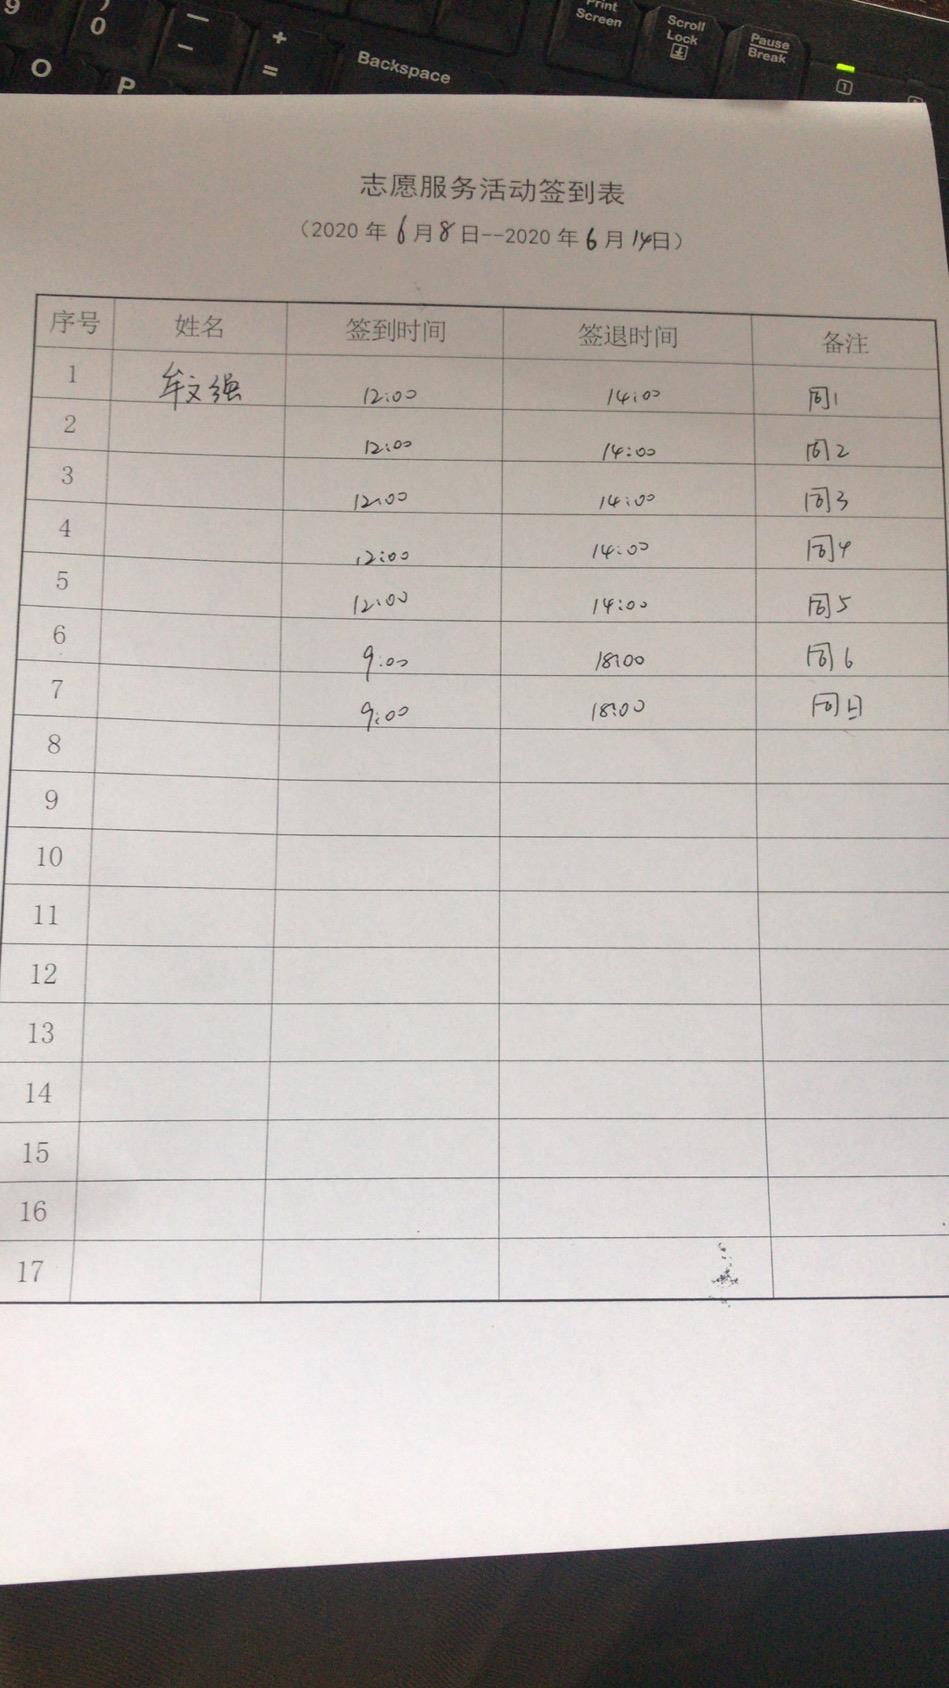 9
)
0
—
-
+
=
Backspace
Print
Screen
Scroll
Lock
Pause
Break
1
O
P
志愿服务活动签到表
（2020 年 6 月 8 日--2020 年 6 月 14日）
序号 姓名 签到时间 签退时间 备注
1 牟文强 12:00 14:00 周1
2 12:00 14:00 周2
3 12:00 14:00 周3
4 12:00 14:00 周4
5 12:00 14:00 周5
6 9:00 18:00 周6
7 9:00 18:00 周日
8
9
10
11
12
13
14
15
16
17